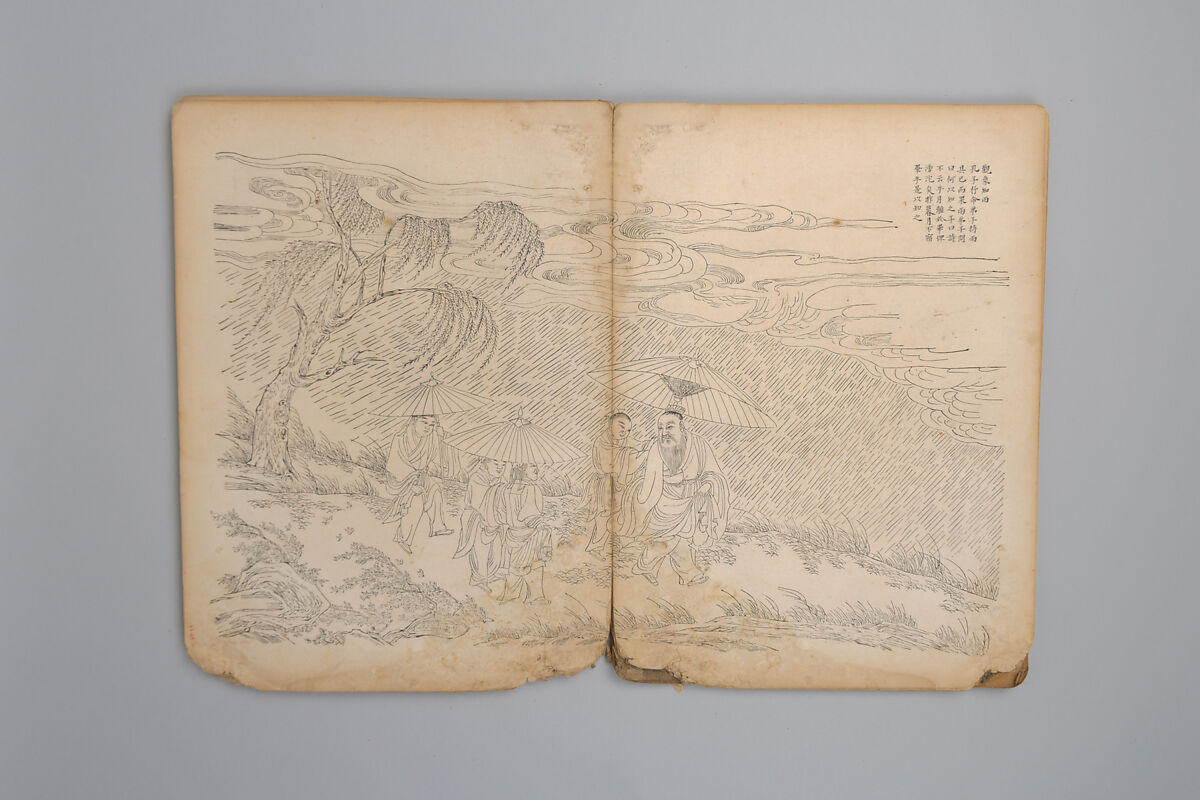 觀象知雨
孔子行命弟子持雨
具已而果雨弟子問
曰何以知之子曰詩
不云乎月離於畢俾
滂沱矣昨暮月不宿
畢乎是以知之